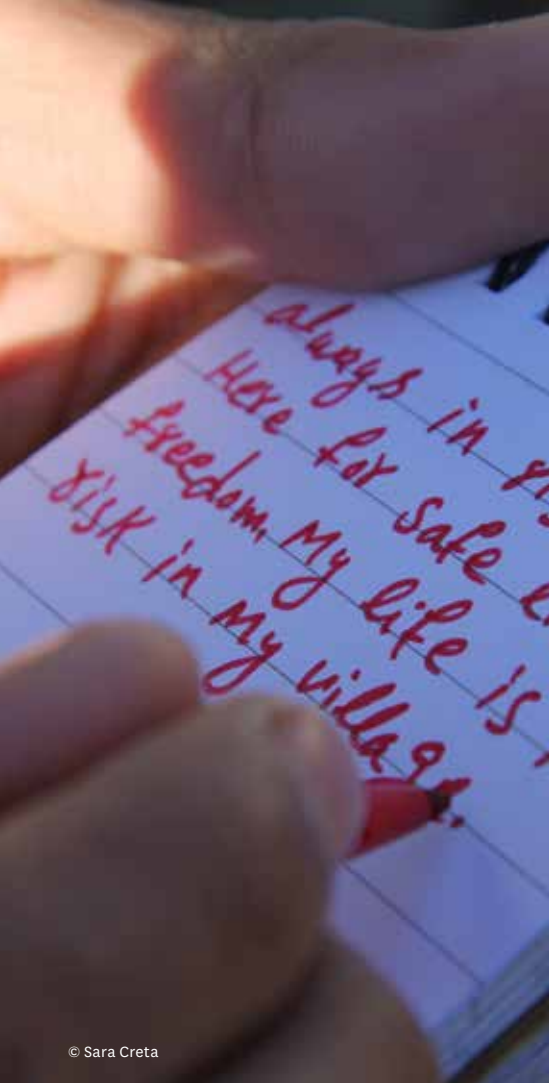 always in
Here for safe
freedom, My life is
risk in My village.
© Sara Creta